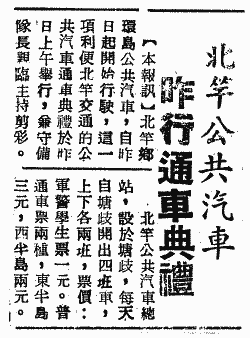 北竿公共汽車
昨行通車典禮
【本報訊】北竿鄉
環島公共汽車,自昨
日起開始行駛,這一
項利便北竿交通的公
共汽車通車典禮於昨
日上午舉行,兼守備
隊長親臨主持剪彩。
北竿公共汽車總
站,設於塘歧,每天
自塘歧開出四班車,
上下各兩班,票價:
軍警學生票一元。普
通車票兩種,東半島
三元,西半島兩元。